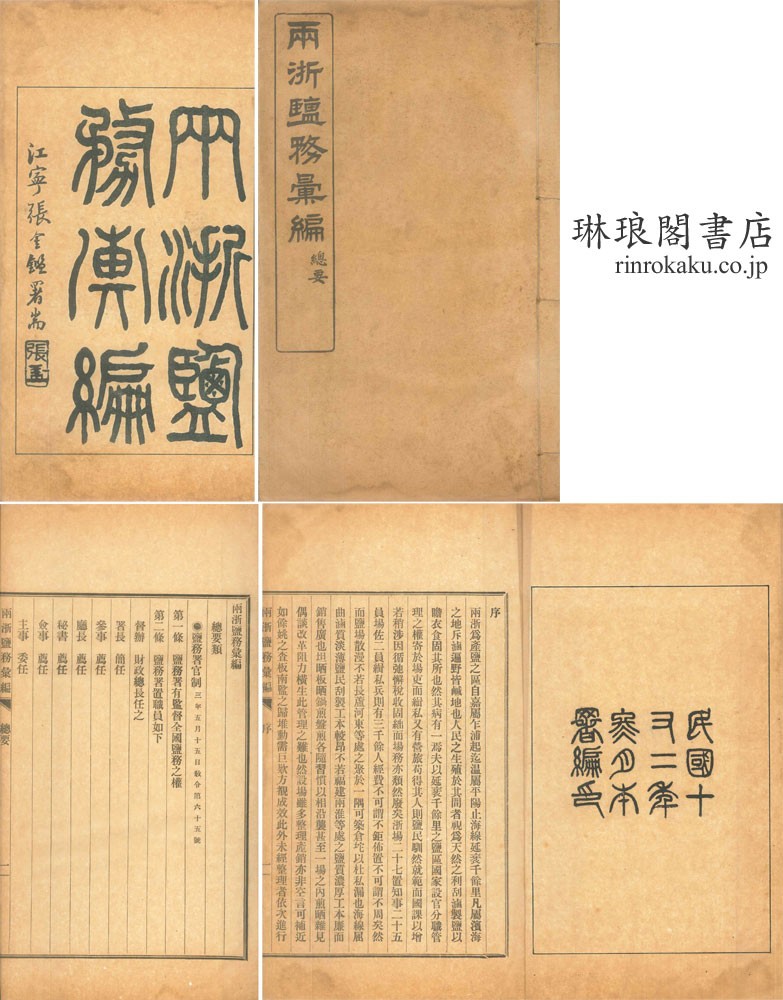 兩浙鹽
務彙編
江寧張金鑑署耑
兩浙鹽務彙編
總要
琳琅閣書店
rinrokaku.co.jp
兩浙鹽務彙編
總要類
鹽務署官制 三年五月十五日敎令第六十五號
第一條 鹽務署有監督全國鹽務之權
第二條 鹽務署置職員如下
督辦 財政總長任之
署長 簡任
參事 薦任
廳長 薦任
秘書 薦任
僉事 薦任
主事 委任
兩浙鹽務彙編 總要 一
民國十
又二年
月本
署編印
序
兩浙爲產鹽之區自嘉屬乍浦起迄温屬平陽止海線延袤千餘里凡屬濱海
之地斥鹵遍野皆鹹地也人民之生殖於其間者視爲天然之利刮滷製鹽以
贍衣食固其所也然其病有一焉夫以延袤千餘里之鹽區國家設官分職管
理之權寄於場吏而緝私又有營旅苟得其人則鹽民馴然就範而國課以增
若稍涉因循弛懈稅收固絀而場務亦頹然廢矣浙場二十七置知事二十五
員場佐二員緝私兵則有三千餘人經費不可謂不鉅佈置不可謂不周矣然
而場鹽散漫不若長蘆河東等處之聚於一隅可築倉坨以杜私漏也海線屈
曲鹵質淡薄鹽民刮製工本較昂不若福建南淮等處之鹽質濃厚工本廉而
銷售廣也坦晒板晒鍋煎盤煎各隨習慣以相沿襲甚至一場之內煎晒雜見
偶談改革阻力橫生此管理之難也然設場雖多整理產銷亦非空言可補近
如餘姚之查板南監之歸堆動需巨欵方覩成效此外未經整理者依次進行
兩浙鹽務彙編 序 一